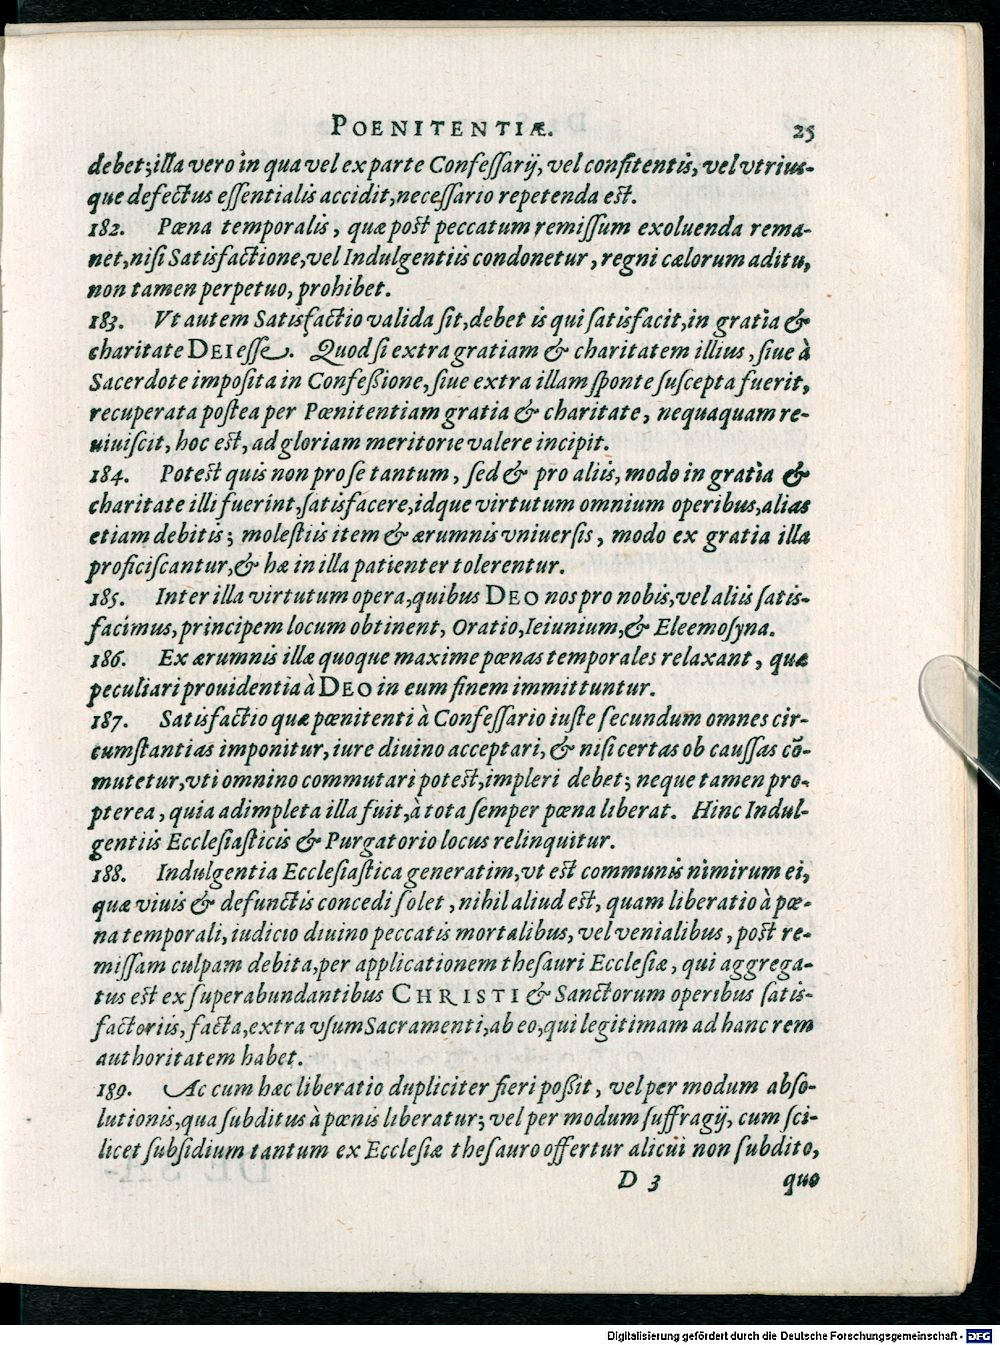 POENITENTIÆ. 25
debet; illa vero in qua vel ex parte Confeſſarij, vel confitentis, vel vtriuſ-
que defectus eſſentialis accidit, neceſſario repetenda est.
182. Pœna temporalis, quæ post peccatum remiſſum exoluenda rema-
net, niſi Satisfactione, vel Indulgentiis condonetur, regni cælorum aditu,
non tamen perpetuo, prohibet.
183. Vt autem Satisfactio valida ſit, debet is qui ſatisfacit, in gratia &
charitate DEI eſſe. Quod ſi extra gratiam & charitatem illius, ſiue à
Sacerdote impoſita in Confeßione, ſiue extra illam ſponte ſuſcepta fuerit,
recuperata poſtea per Pœnitentiam gratia & charitate, nequaquam re-
uiuiſcit, hoc est, ad gloriam meritorie valere incipit.
184. Potest quis non pro ſe tantum, ſed & pro aliis, modo in gratia &
charitate illi fuerint, ſatisfacere, idque virtutum omnium operibus, alias
etiam debitis; moleſtiis item & ærumnis vniuerſis, modo ex gratia illa
proficiſcantur, & hæ in illa patienter tolerentur.
185. Inter illa virtutum opera, quibus DEO nos pro nobis, vel aliis ſatiſ-
facimus, principem locum obtinent, Oratio, Ieiunium, & Eleemoſyna.
186. Ex ærumnis illæ quoque maxime pœnas temporales relaxant, quæ
peculiari prouidentia à DEO in eum finem immittuntur.
187. Satisfactio quæ pœnitenti à Confeſſario iuſte ſecundum omnes cir-
cumſtantias imponitur, iure diuino acceptari, & niſi certas ob cauſſas cō-
mutetur, vti omnino commutari potest, impleri debet; neque tamen pro-
pterea, quia adimpleta illa fuit, à tota ſemper pœna liberat. Hinc Indul-
gentiis Eccleſiaſticis & Purgatorio locus relinquitur.
188. Indulgentia Eccleſiaſtica generatim, vt est communis nimirum ei,
quæ viuis & defunctis concedi ſolet, nihil aliud est, quam liberatio à pœ-
na temporali, iudicio diuino peccatis mortalibus, vel venialibus, post re-
miſſam culpam debita, per applicationem theſauri Eccleſiæ, qui aggrega-
tus est ex ſuperabundantibus CHRISTI & Sanctorum operibus ſatiſ-
factoriis, facta, extra vſum Sacramenti, ab eo, qui legitimam ad hanc rem
authoritatem habet.
189. Ac cum hæc liberatio dupliciter fieri poßit, vel per modum abſo-
lutionis, qua ſubditus à pœnis liberatur; vel per modum ſuffragij, cum ſci-
licet ſubſidium tantum ex Eccleſiæ theſauro offertur alicui non ſubdito,
D 3 quo
Digitalisierung gefördert durch die Deutsche Forschungsgemeinschaft - DFG